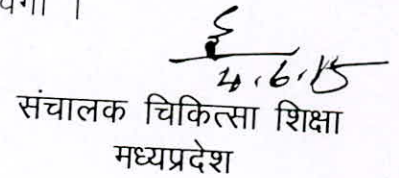 ।
4.6.15
संचालक चिकित्सा शिक्षा
मध्यप्रदेश